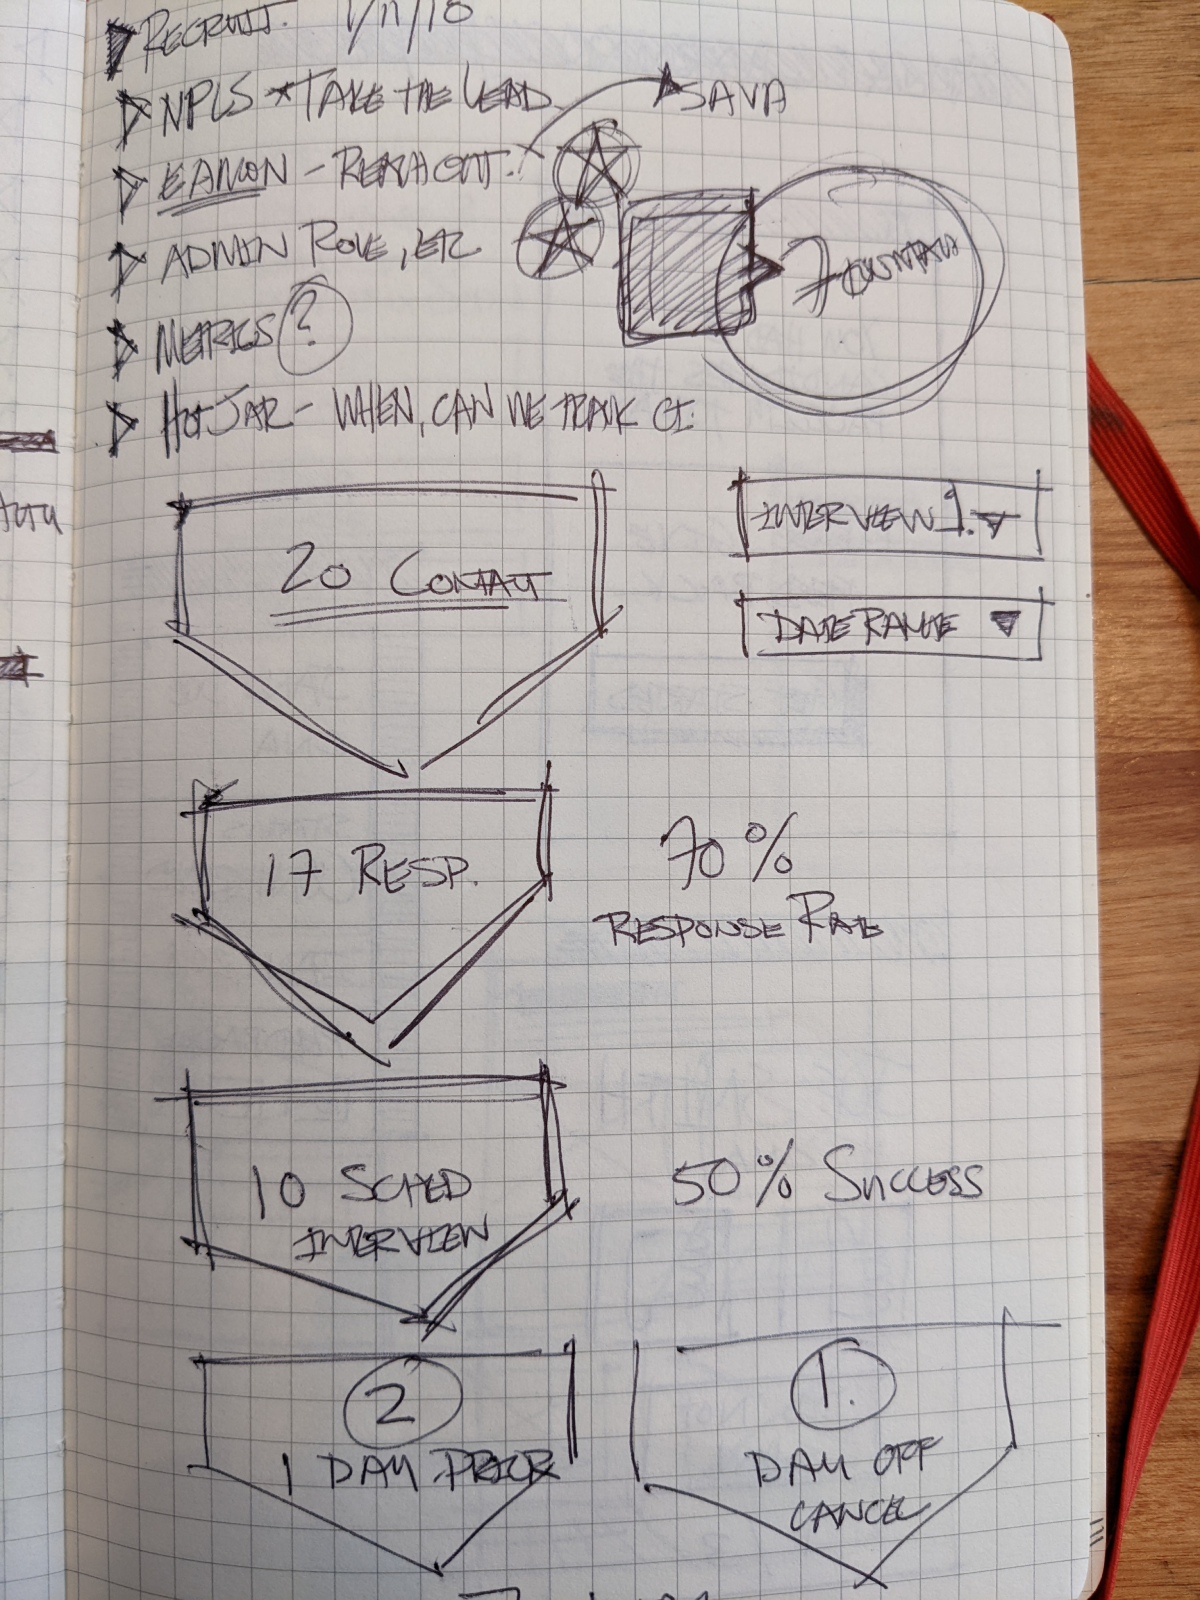 RECRUIT. 1/11/18
NPLS * TAKE THE LEAD
SAVA
EAMON - REACH OUT.
ADMIN ROLE, ETC
7
METRICS ?
HOTJAR - WHEN, CAN WE TRACK
20 CONTACT
INTERVIEW 1.
DATE RANGE
17 RESP.
70%
RESPONSE RATE
10 SCHED
INTERVIEW
50% SUCCESS
2
1 DAY PRIOR
1.
DAY OFF
CANCEL